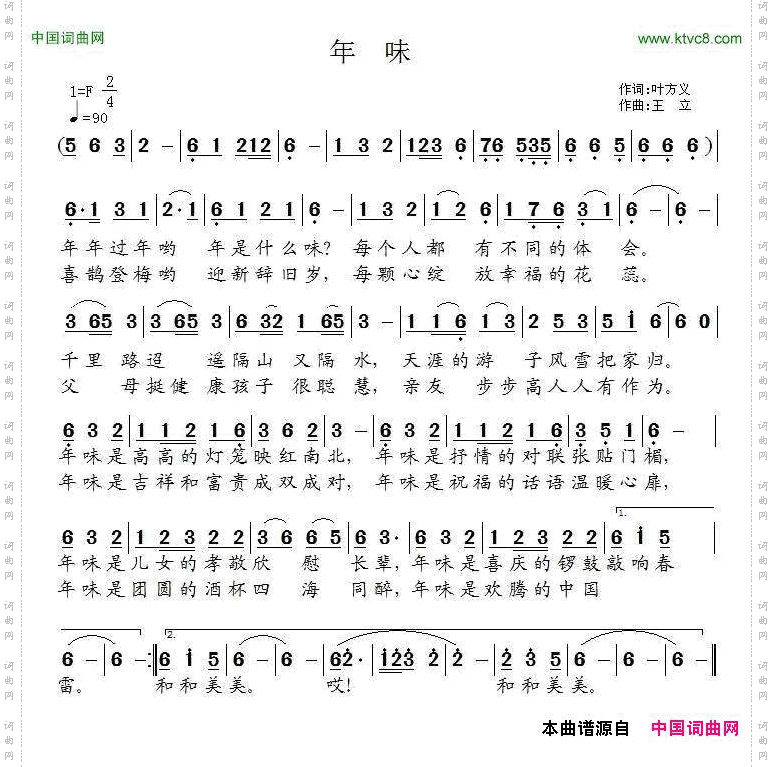 中国词曲网
www.ktvc8.com
年 味
1=F 2/4
♩=90
作词:叶方义
作曲:王 立
(5 6 3 | 2 - | 6 1 212 | 6 - | 1 3 2 | 123 6 | 76 535 | 6 6 5 | 6 6 6 )
6·1 3 1 | 2·1 | 6 1 2 1 | 6 - | 1 3 2 | 1 2 6 | 1 7 6 3 1 | 6 - | 6 - |
年年过年哟 年是什么味? 每个人都 有不同的体 会。
喜鹊登梅哟 迎新辞旧岁, 每颗心绽 放幸福的花 蕊。
3 65 3 | 3 65 3 | 6 32 1 65 | 3 - | 1 1 6 1 3 | 2 5 3 5 | 5 1 6 | 6 0 |
千里 路迢 遥隔山 又隔 水, 天涯的游 子风雪把家归。
父 母挺健 康孩子 很聪 慧, 亲友 步步高人人有作为。
6 3 2 | 1 1 2 1 6 | 3 6 2 | 3 - | 6 3 2 | 1 1 2 1 6 | 3 5 1 | 6 - |
年味是高高的灯笼映红南北, 年味是抒情的对联张贴门楣,
年味是吉祥和富贵成双成对, 年味是祝福的话语温暖心扉,
6 3 2 | 1 2 3 2 2 | 3 6 6 5 | 6 3· | 6 3 2 | 1 2 3 2 2 | 1. 6 1 5 |
年味是儿女的孝敬欣 慰 长辈, 年味是喜庆的锣鼓敲响春
年味是团圆的酒杯四 海 同醉, 年味是欢腾的中国
6 - | 6 - :‖ 2. 6 1 5 | 6 - | 6 - | 62· | 123 2 | 2 - | 2 3 5 | 6 - | 6 - ‖
雷。 和和美美。 哎! 和和美美。
本曲谱源自 中国词曲网
词曲网